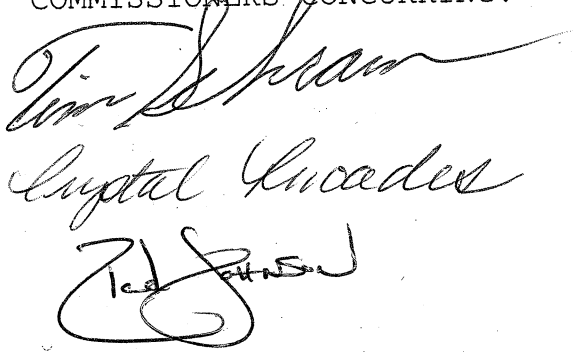 COMMISSIONERS CONCURRING:
Tim Schram
Crystal Rhoades
Rod Johnson